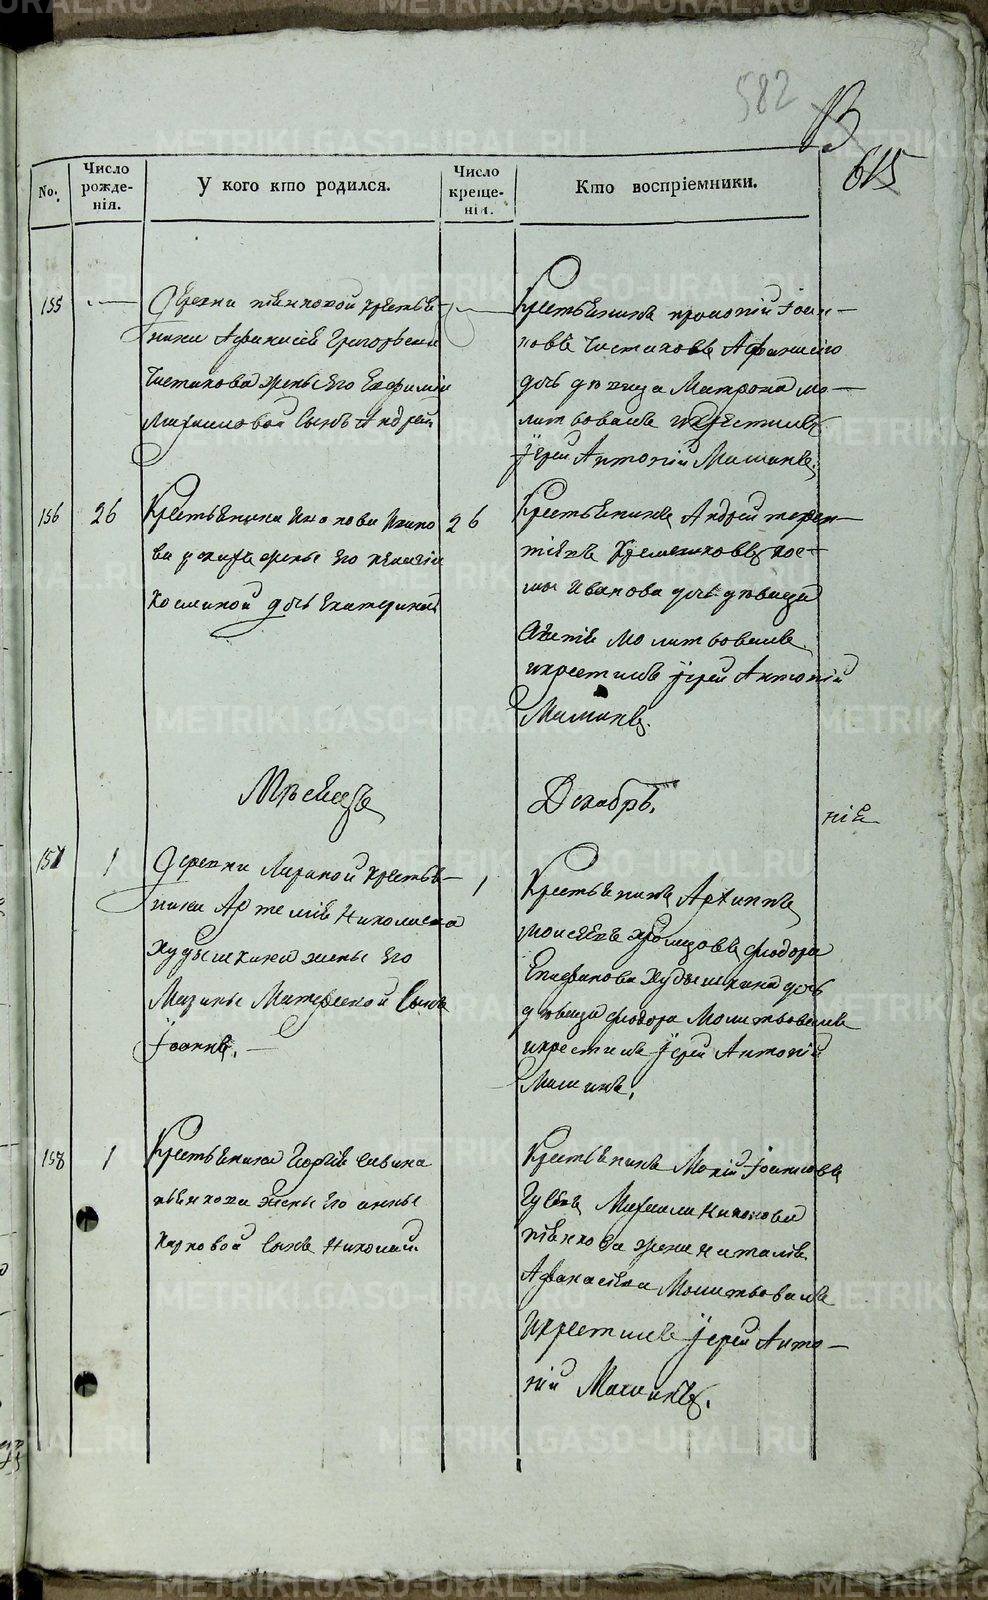 METRIKI.GASO-URAL.RU
582
В
615
No.
Число рожде-нія.
У кого кто родился.
Число креще-нія.
Кто воспріемники.
155
Деревни пѣвиковой крестья-
нина Афанасія Григорьева
Чистякова жены его Евфиміи
Михаиловой сынъ Андрей
Крестьянинъ Іоан-
новъ Чистяковъ Афанасія
дочь дѣвица Матрона мо-
литвовалъ икрестилъ
Іерей Антоній Маминъ.
156
26
Крестьянина
жены его
Косминой дочь Екатерина
26
Крестьянинъ Андрей Терен-
тіевъ Кос-
мы Иванова дочь дѣвица
молитвовалъ
икрестилъ Іерей Антоній
Маминъ.
Мѣсяцъ
Декабрь.
ніе
157
1
Деревни крестья-
нина Артемія Николаева
Худышкина жены его
Матфеевой сынъ
Іоаннъ.
1
Крестьянинъ Архиппъ
Моисеевъ Феодора
Епифанова Худышкина дочь
дѣвица Феодора Молитвовалъ
икрестилъ Іерей Антоній
Маминъ.
158
1
Крестьянина Георгія Савина
жены его Анны
Карповой сынъ Николай
Крестьянинъ Мокій Іоанновъ
Михаила Никонова
жена Наталія
Афанасіева Молитвовалъ
Икрестилъ Іерей Анто-
ній Маминъ.